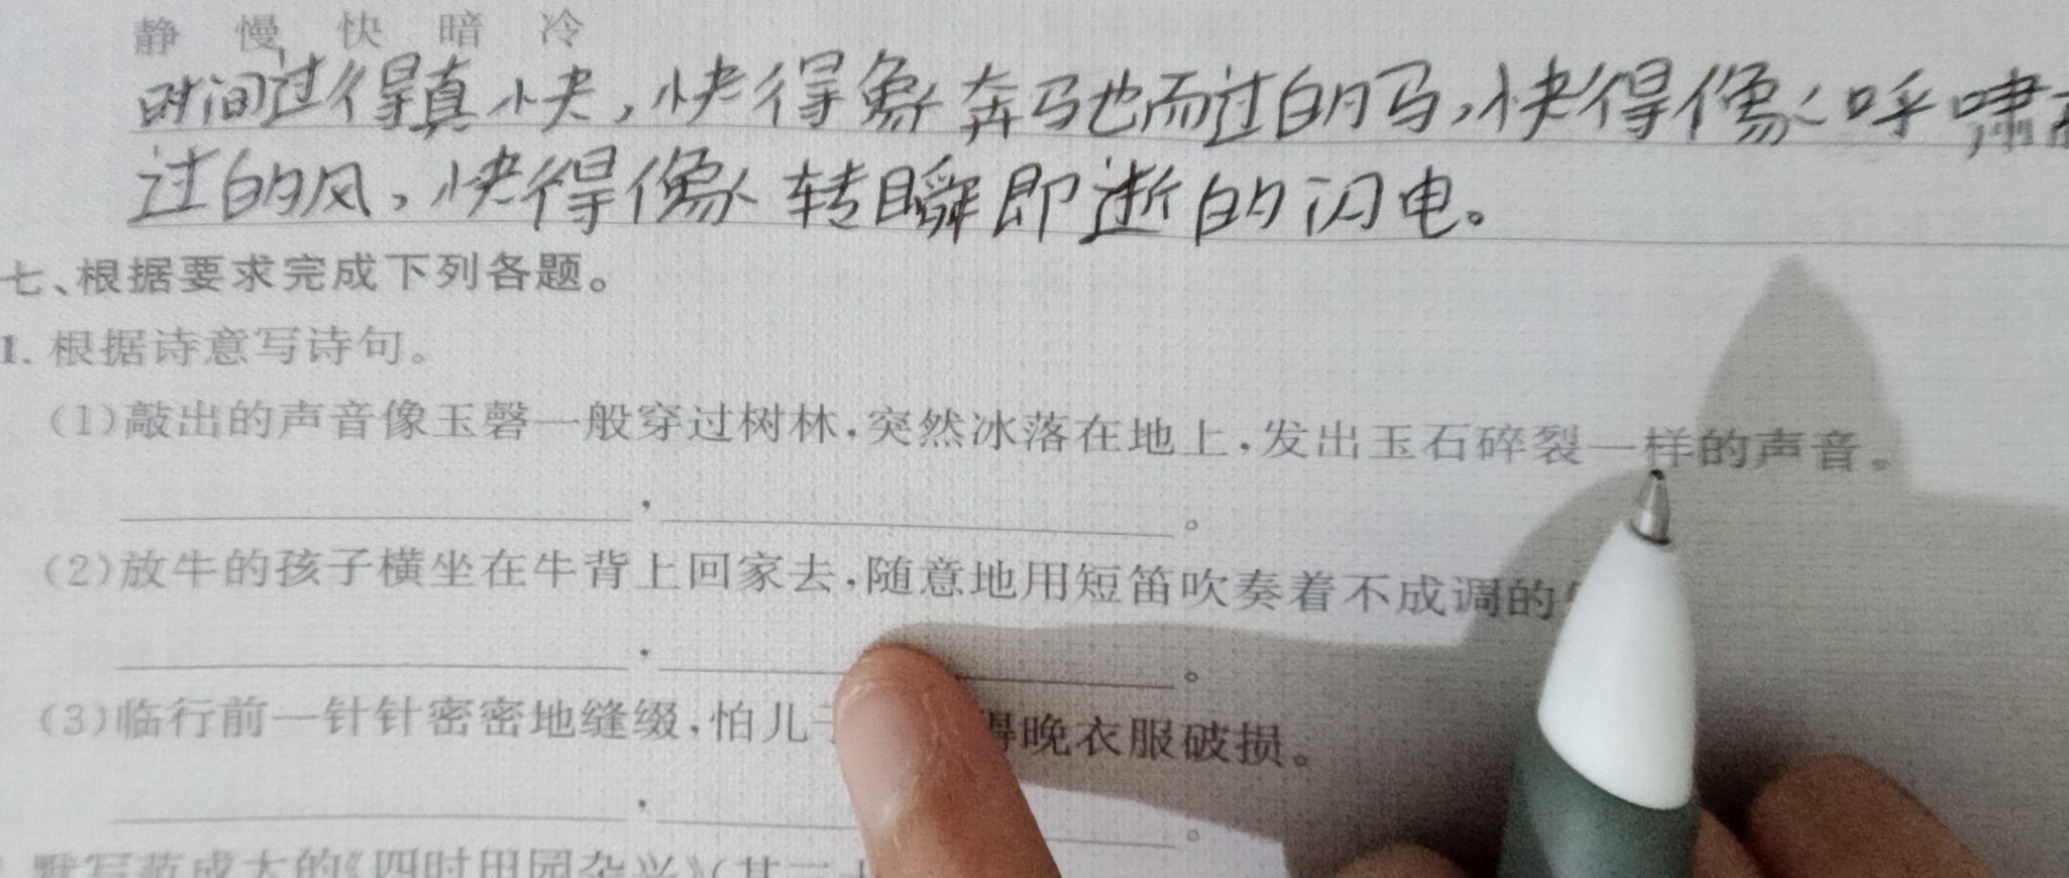 静 慢 快 暗 冷
时间过得真快,快得像奔驰而过的马,快得像呼啸而
过的风,快得像转瞬即逝的闪电。
七、根据要求完成下列各题。
1. 根据诗意写诗句。
(1)敲出的声音像玉磬一般穿过树林,突然冰落在地上,发出玉石碎裂一样的声音。
,。
(2)放牛的孩子横坐在牛背上回家去,随意地用短笛吹奏着不成调的
,。
(3)临行前一针针密密地缝缀,怕儿 得晚衣服破损。
,。
默写范成大的《四时田园杂兴》(其二十